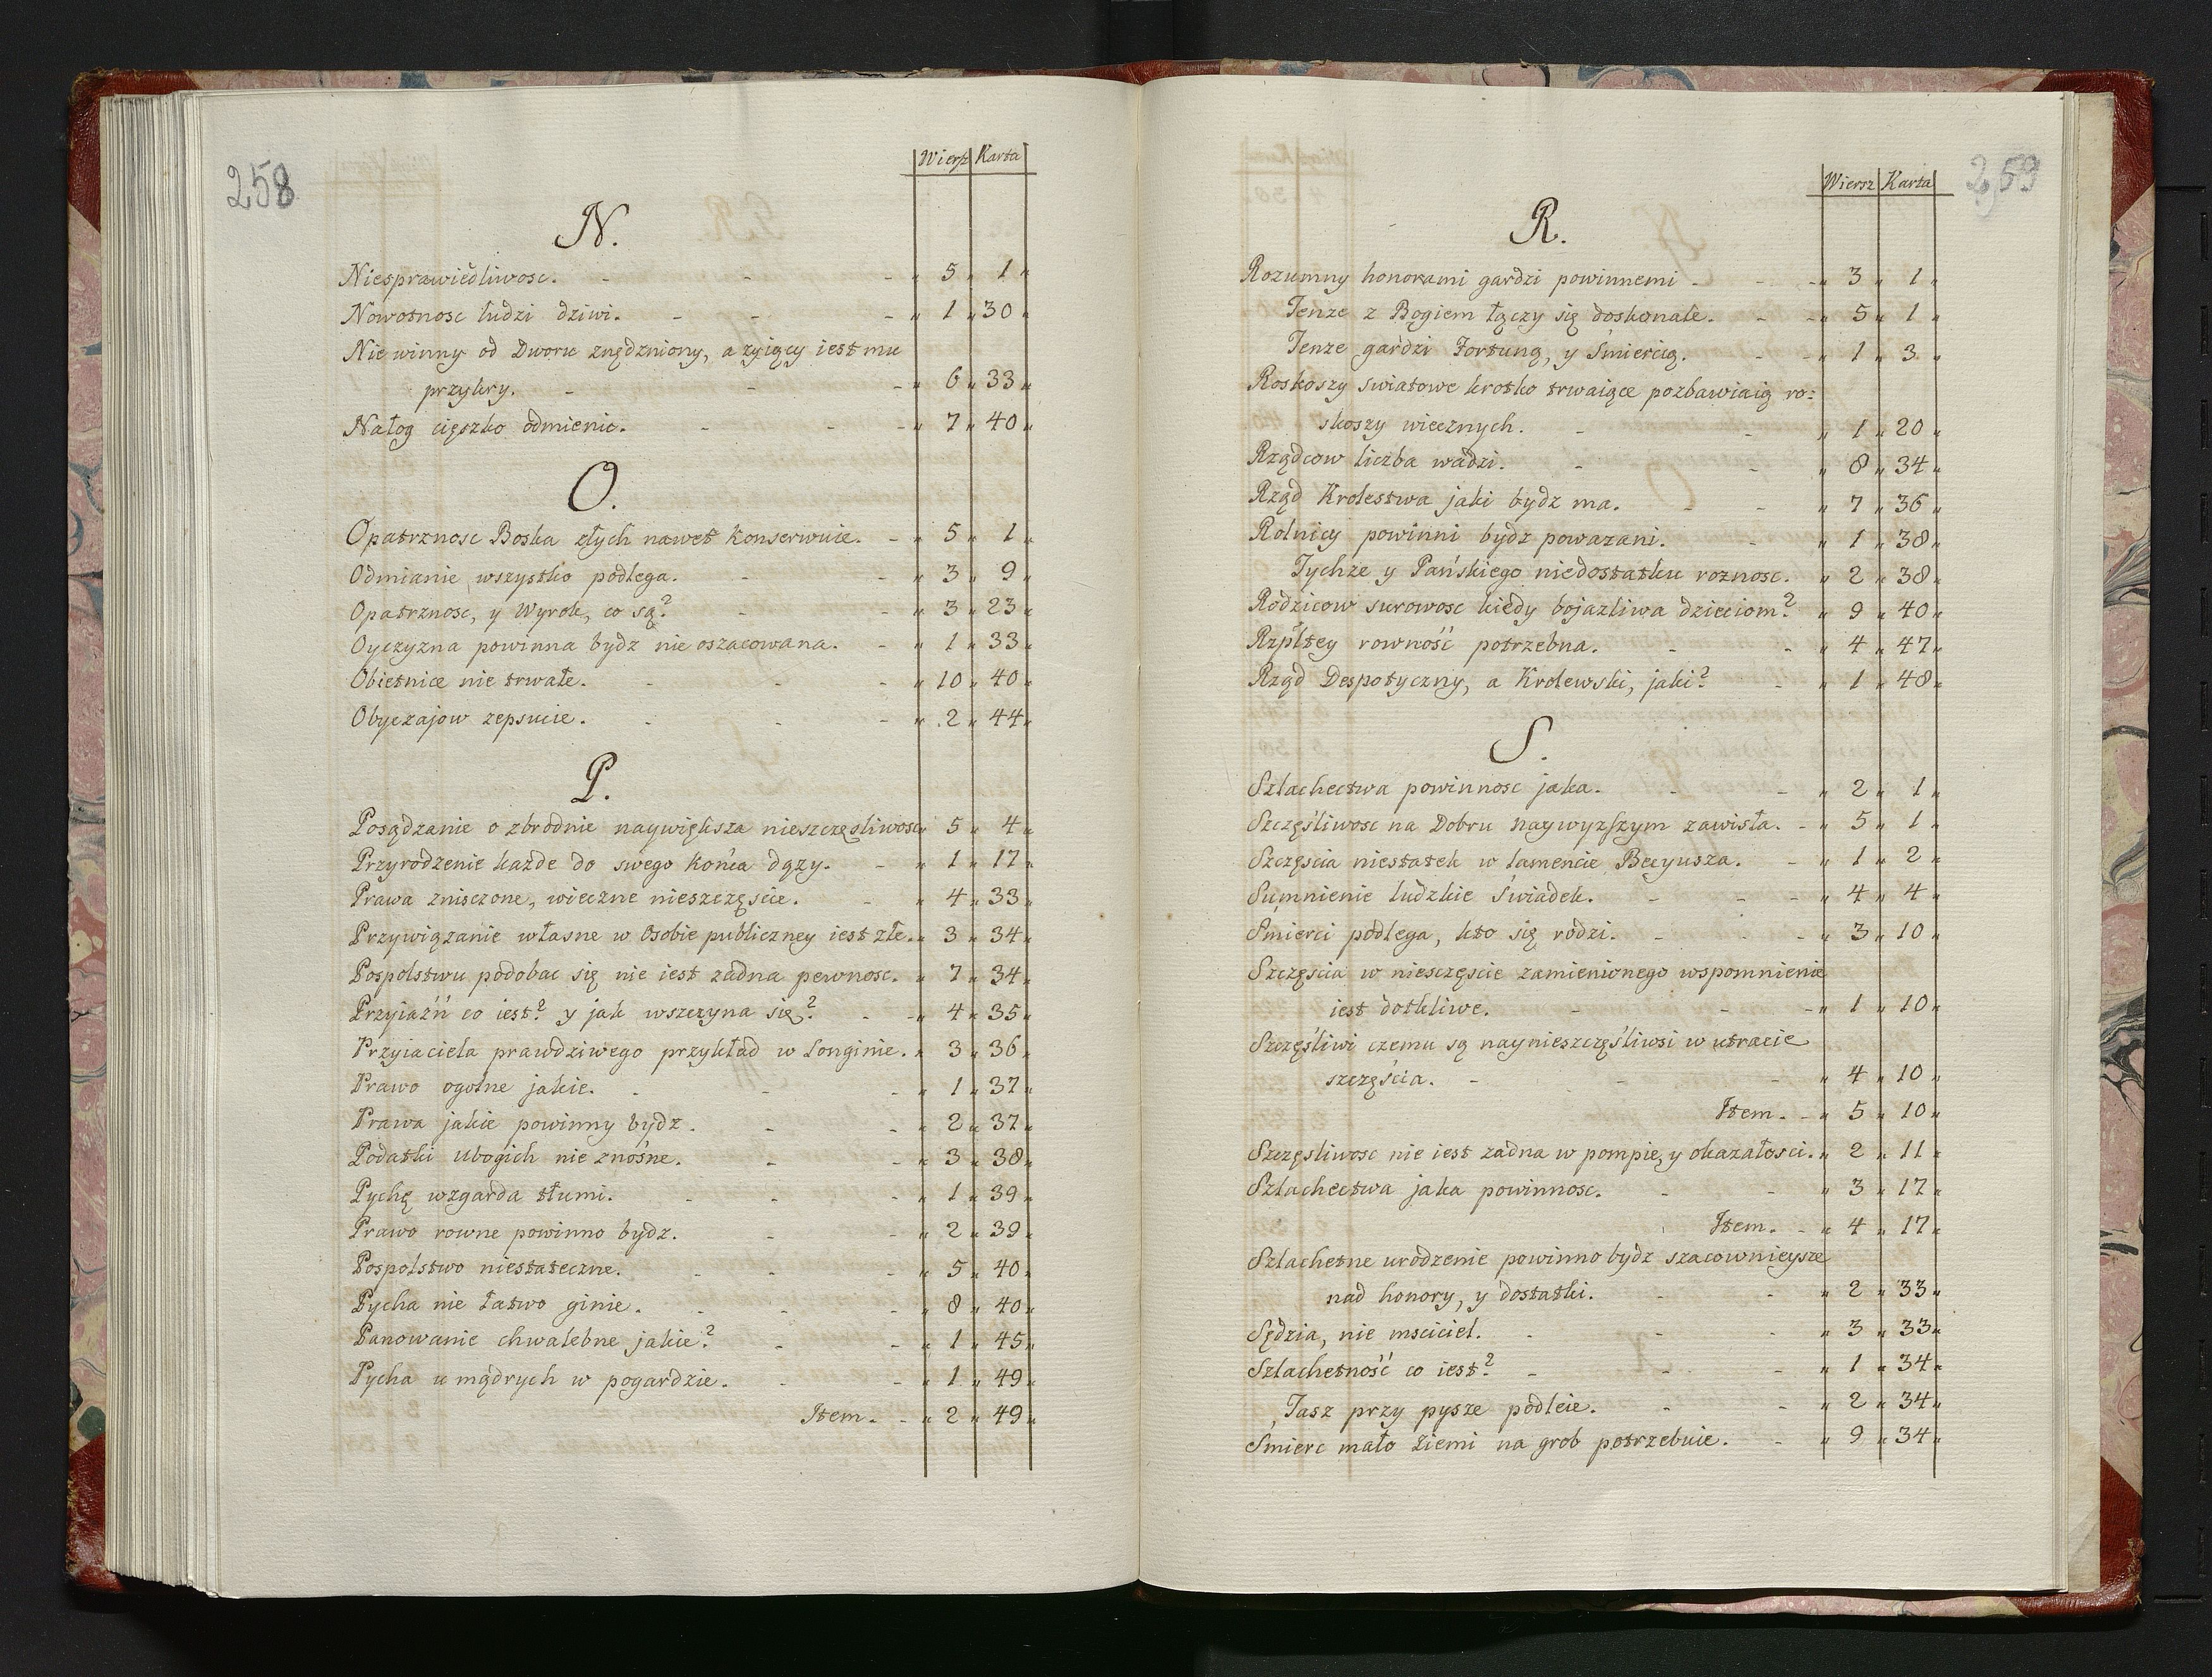 258
Wiersz Karta
N.
Niesprawiedliwosc. - - - „ 5 „ 1 „
Nowotnosc ludzi dziwi. - - - „ 1 „ 30 „
Niewinny od Dworu znędzniony, a zyiący iest mu
przykry. - - - „ 6 „ 33 „
Nałog cięszko odmienic. - - - „ 7 „ 40 „
O.
Opatrznosc Boska złych nawet konserwuie. - „ 5 „ 1 „
Odmianie wszystko podlega. - - „ 3 „ 9 „
Opatrznosc, y Wyrok, co są? - - „ 3 „ 23 „
Oyczyzna powinna bydz nie oszacowana. - „ 1 „ 33 „
Obietnice nie trwałe. - - - „ 10 „ 40 „
Obyczajow zepsucie. - - - „ 2 „ 44 „
P.
Posądzanie o zbrodnie naywiększa nieszczęsliwosc „ 5 „ 4 „
Przyrodzenie kazde do swego końca dązy. - „ 1 „ 17 „
Prawa znisczone, wieczne nieszczęscie. - - „ 4 „ 33 „
Przywiązanie własne w Osobie publiczney iest złe. „ 3 „ 34 „
Pospolstwu podobac się nie iest zadna pewnosc. „ 7 „ 34 „
Przyiaźń co iest? y jak wszczyna się? - - „ 4 „ 35 „
Przyiaciela prawdziwego przykład w Longinie. „ 3 „ 36 „
Prawo ogolne jakie. - - - „ 1 „ 37 „
Prawa jakie powinny bydz. - - „ 2 „ 37 „
Podatki ubogich nie znośne. - - „ 3 „ 38 „
Pychę wzgarda tłumi. - - - „ 1 „ 39 „
Prawo rowne powinno bydz. - - „ 2 „ 39 „
Pospolstwo niestateczne. - - - „ 5 „ 40 „
Pycha nie łatwo ginie. - - - „ 8 „ 40 „
Panowanie chwalebne jakie? - - „ 1 „ 45 „
Pycha u mądrych w pogardzie. - - „ 1 „ 49 „
Item. - „ 2 „ 49 „
259
Wiersz Karta
R.
Rozumny honorami gardzi powinnemi - - - „ 3 „ 1 „
Tenze z Bogiem łączy się doskonale. - - „ 5 „ 1 „
Tenze gardzi Fortuną, y Śmiercią. - - „ 1 „ 3 „
Roskoszy swiatowe krotko trwaiące pozbawiaią ro:
skoszy wiecznych. - - „ 1 „ 20 „
Rządcow liczba wadzi. - - „ 8 „ 34 „
Rząd Krolestwa jaki bydz ma. - - „ 7 „ 36 „
Rolnicy powinni bydz powazani. - „ 1 „ 38 „
Tychze y Pańskiego niedostatku roznosc. „ 2 „ 38 „
Rodzicow surowosc kiedy bojazliwa dzieciom? „ 9 „ 40 „
Rzpltey rowność potrzebna. - - „ 4 „ 47 „
Rząd Despotyczny, a Krolewski, jaki? - „ 1 „ 48 „
S.
Szlachectwa powinnosc jaka. - - „ 2 „ 1 „
Szczęśliwosc na Dobru naywyzszym zawisła. - „ 5 „ 1 „
Szczęscia niestatek w lamencie Becyusza. - „ 1 „ 2 „
Sumnienie ludzkie Świadek. - - - „ 4 „ 4 „
Śmierci podlega, kto się rodzi. - - - „ 3 „ 10 „
Szczęscia w niesczęscie zamienionego wspomnienie
iest dotkliwe. - - - „ 1 „ 10 „
Szczęśliwi czemu są naynieszczęśliwsi w utracie
szczęścia. - - - „ 4 „ 10 „
Item. - „ 5 „ 10 „
Szczęsliwosc nie iest zadna w pompie, y okazałosci. „ 2 „ 11 „
Szlachectwa jaka powinnosc. - - „ 3 „ 17 „
Item. - „ 4 „ 17 „
Szlachetne urodzenie powinno bydz szacownieysze
nad honory, y dostatki. - - „ 2 „ 33 „
Sędzia, nie msciciel. - - - „ 3 „ 33 „
Szlachetność co iest? - - - „ 1 „ 34 „
Tasz przy pysze podleie. - - „ 2 „ 34 „
Śmierc mało Ziemi na grob potrzebuie. - „ 9 „ 34 „